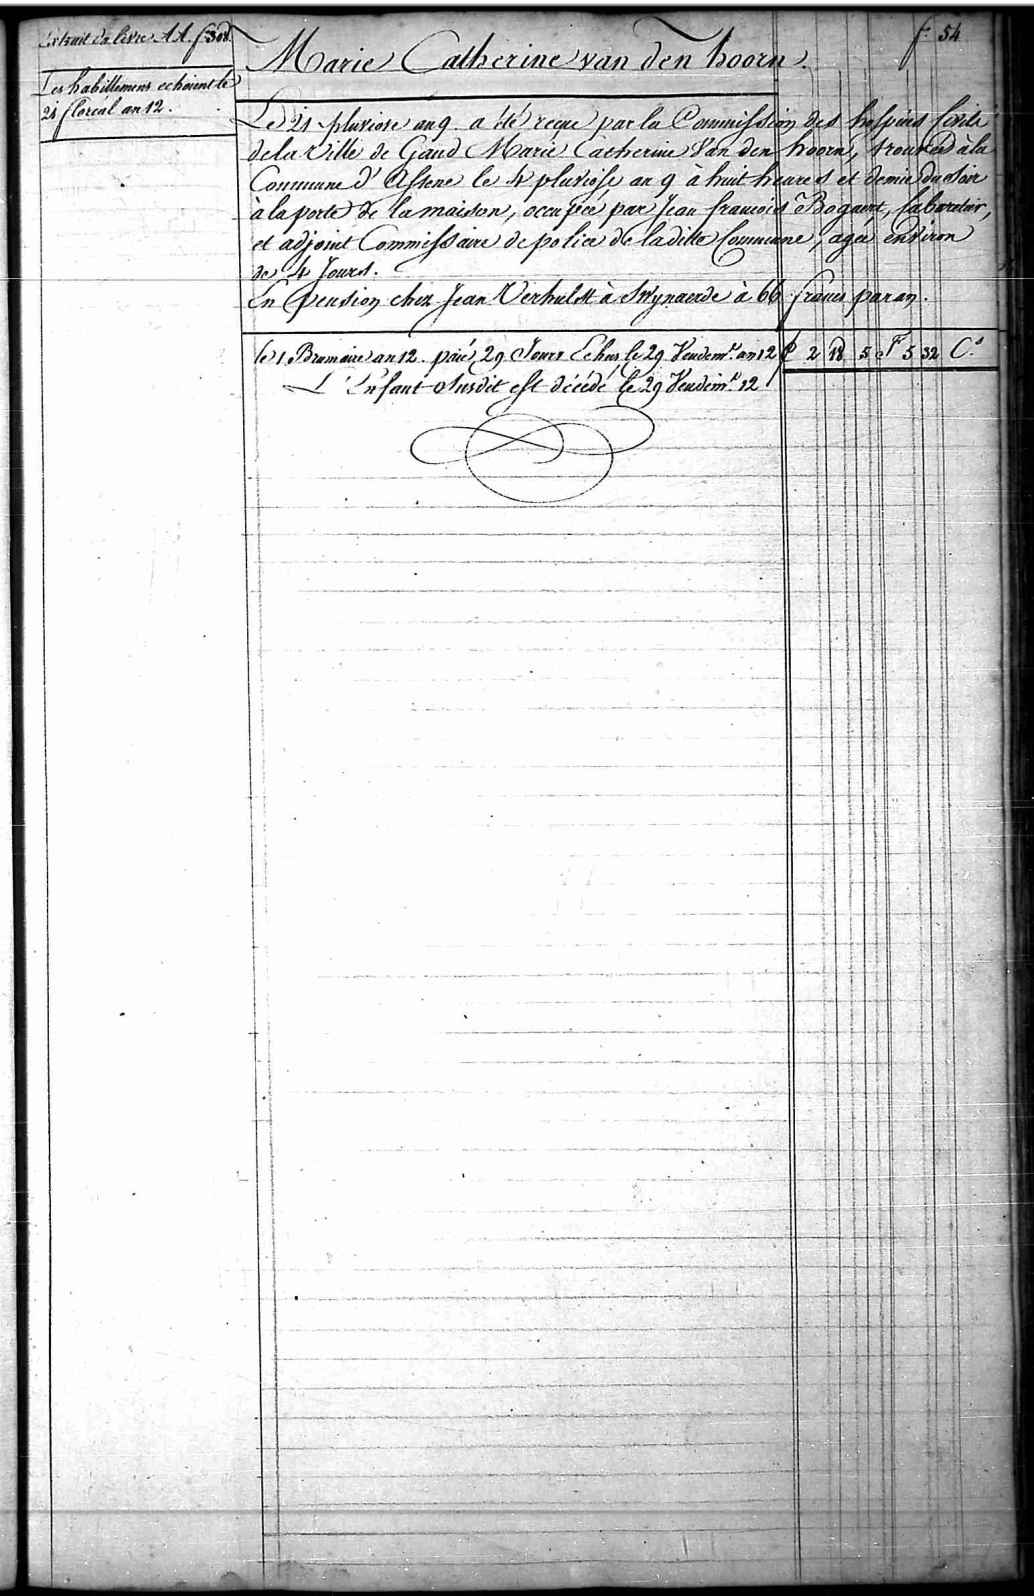 Extrait du livre AA. f. 308.
f. 54
Marie Catherine van den hoorn.
Les habillemens echoient le
21 floréal an 12.
Le 21 pluviose an 9. a été reçue par la Commission des hospices Civils
de la Ville de Gand Marie Catherine Van den hoorn, trouvée à la
Commune d'Astene le 4 pluviose an 9 à huit heures et demie du Soir
à la porte de la maison, occupée par Jean francois Bogaert, Cabaretier,
et adjoint Commissaire de police de la ditte Commune, agée environ
de 4 Jours.
En pension chez Jean Verhulst à Swynaerde à 66 francs par an.
le 1 Brumaire an 12. paié 29 Jours Echus le 29 Vendemre. an 12 £ 2 18 5 F 5 32 Cs.
L'Enfant Susdit est décédé le 29 Vendemre. 12